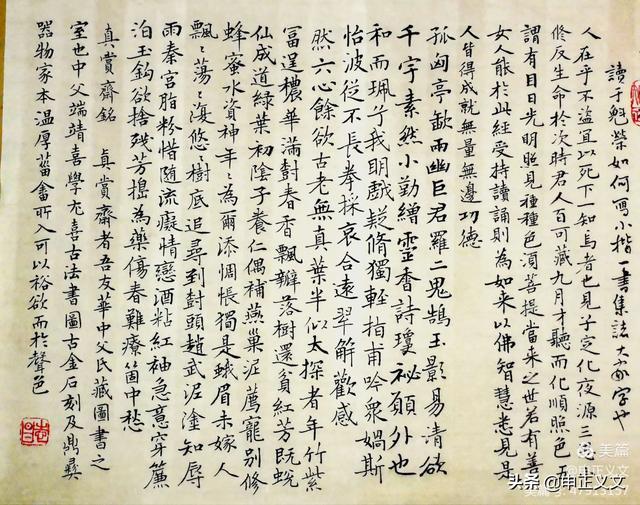 讀于魁榮如何寫小楷一書集誌大家字也
人在乎不盜宜以死下一知焉者也見子定化夜源三
修反生命於次時君人百可藏九月才聽而化順照色
謂有目日光明照見種種色須菩提當来之世若有善
女人能於此經受持讀誦則為如来以佛智慧悉見是
人皆得成就無量無邊功德
孤匈亭歙兩幽巨君羅二鬼鵠玉影易清欲
千字素然小勤繒靈香詩瓊祕願外也
和而珮予我明戲疑脩獨輕指甫吟眾媧斯
怡波従不長拳採哀合遠翆解歡感
然六心餘欲古老無真葉半似太探者年竹紫
冨逞穠華滿對春香飄瓣落樹還貧紅芳既蛻
仙成道綠葉初陰子養仁偶補燕巢泥薦寵別修
蜂蜜水資神年々為爾添惆悵獨是蛾眉未嫁人
飄々蕩々復悠々樹底追尋到對頭趙武泥塗知辱
雨秦宮脂粉惜隨流癡情戀酒粘紅袖急意穿簾
泊玉鈎欲捨残芳搗為藥傷春難療箇中愁
真賞齋銘 真賞齋者吾友華中父氏藏圖書之
室也中父端靖喜學尤喜古法書圖古金石刻及鼎彝
器物家本温厚菑畬所入可以裕欲而於聲色
美篇
美篇号: 47513157
头条 @申正义文